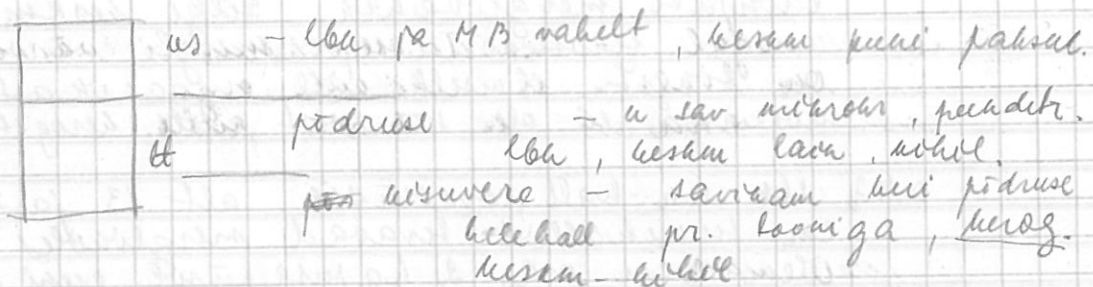 us – lbn ja MB vahelt, keskm kuni paksuk.
põdruse – n sav mikrokr, peendetr.
lbn, keskm lain, kihil.
nisuvere – savikam kui põdruse
helehall pr. tooniga, kerog.
keskm – kihil